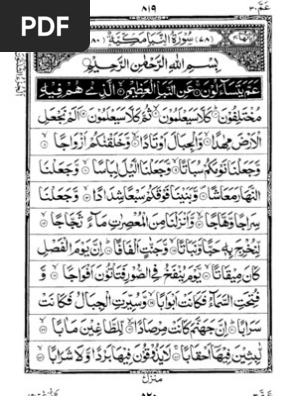 PDF
عَمَّ ٣٠
٨١٩
(٧٨) سُوْرَةُ النَّبَاِ مَكِّيَّةٌ (٨٠)
بِسْمِ اللّٰهِ الرَّحْمٰنِ الرَّحِيْمِ
عَمَّ يَتَسَآءَلُوْنَ عَنِ النَّبَاِ الْعَظِيْمِ الَّذِيْ هُمْ فِيْهِ
مُخْتَلِفُوْنَ كَلَّا سَيَعْلَمُوْنَ ثُمَّ كَلَّا سَيَعْلَمُوْنَ اَلَمْ نَجْعَلِ
الْاَرْضَ مِهٰدًا وَّالْجِبَالَ اَوْتَادًا وَّخَلَقْنٰكُمْ اَزْوَاجًا
وَّجَعَلْنَا نَوْمَكُمْ سُبَاتًا وَّجَعَلْنَا الَّيْلَ لِبَاسًا وَّجَعَلْنَا
النَّهَارَ مَعَاشًا وَّبَنَيْنَا فَوْقَكُمْ سَبْعًا شِدَادًا وَّجَعَلْنَا
سِرَاجًا وَّهَّاجًا وَّاَنْزَلْنَا مِنَ الْمُعْصِرٰتِ مَآءً ثَجَّاجًا
لِّنُخْرِجَ بِهٖ حَبًّا وَّنَبَاتًا وَّجَنّٰتٍ اَلْفَافًا اِنَّ يَوْمَ الْفَصْلِ
كَانَ مِيْقَاتًا يَّوْمَ يُنْفَخُ فِي الصُّوْرِ فَتَاْتُوْنَ اَفْوَاجًا وَّ
فُتِحَتِ السَّمَآءُ فَكَانَتْ اَبْوَابًا وَّسُيِّرَتِ الْجِبَالُ فَكَانَتْ
سَرَابًا اِنَّ جَهَنَّمَ كَانَتْ مِرْصَادًا لِّلطَّاغِيْنَ مَاٰبًا
لّٰبِثِيْنَ فِيْهَآ اَحْقَابًا لَا يَذُوْقُوْنَ فِيْهَا بَرْدًا وَّلَا شَرَابًا
منزل